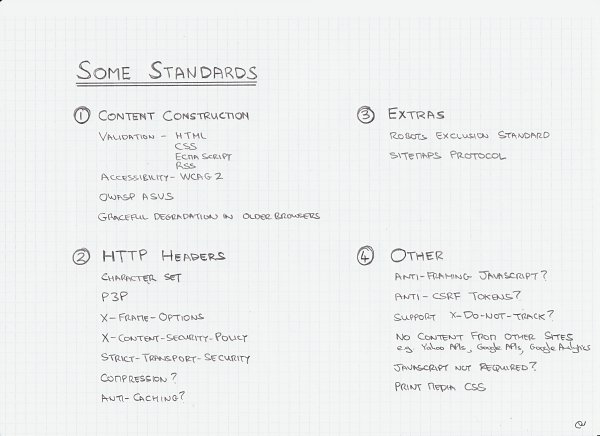 SOME STANDARDS
① CONTENT CONSTRUCTION
VALIDATION - HTML
CSS
ECMA SCRIPT
RSS
ACCESSIBILITY - WCAG 2
OWASP ASVS
GRACEFUL DEGRADATION IN OLDER BROWSERS
② HTTP HEADERS
CHARACTER SET
P3P
X-FRAME-OPTIONS
X-CONTENT-SECURITY-POLICY
STRICT-TRANSPORT-SECURITY
COMPRESSION?
ANTI-CACHING?
③ EXTRAS
ROBOTS EXCLUSION STANDARD
SITEMAPS PROTOCOL
④ OTHER
ANTI-FRAMING JAVASCRIPT?
ANTI-CSRF TOKENS?
SUPPORT X-DO-NOT-TRACK?
NO CONTENT FROM OTHER SITES
e.g. Yahoo APIs, Google APIs, Google Analytics
JAVASCRIPT NOT REQUIRED?
PRINT MEDIA CSS